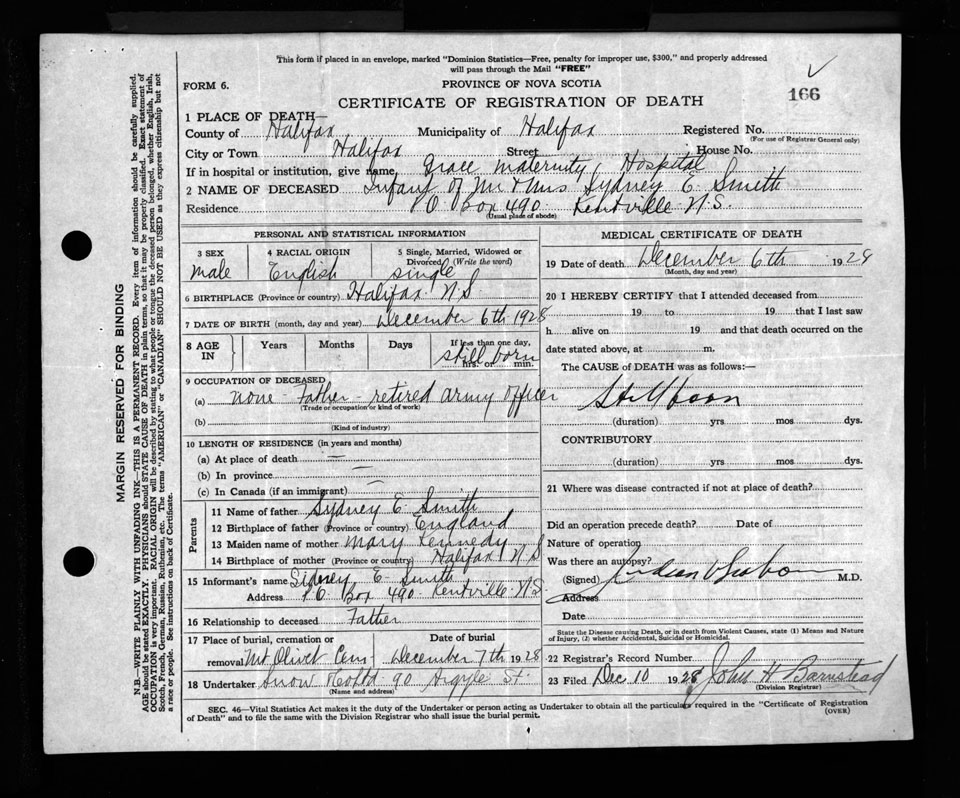 This form if placed in an envelope, marked "Dominion Statistics—Free, penalty for improper use, $300," and properly addressed
will pass through the Mail "FREE"
FORM 6.
PROVINCE OF NOVA SCOTIA
CERTIFICATE OF REGISTRATION OF DEATH
166
1 PLACE OF DEATH—
County of Halifax Municipality of Halifax Registered No.
(For use of Registrar General only)
City or Town Halifax Street House No.
If in hospital or institution, give name Grace Maternity Hospital
2 NAME OF DECEASED Infant of Mr & Mrs Sydney E. Smith
Residence P.O. Box 490 Kentville N.S.
(Usual place of abode)
PERSONAL AND STATISTICAL INFORMATION
3 SEX 4 RACIAL ORIGIN 5 Single, Married, Widowed or
Divorced (Write the word)
male English single
6 BIRTHPLACE (Province or country) Halifax N.S.
7 DATE OF BIRTH (month, day and year) December 6th 1928
8 AGE IN Years Months Days If less than one day,
still born
hrs. or min.
9 OCCUPATION OF DECEASED
(a) none - Father - retired army officer
(Trade or occupation or kind of work)
(b)
(Kind of industry)
10 LENGTH OF RESIDENCE (in years and months)
(a) At place of death —
(b) In province —
(c) In Canada (if an immigrant) —
Parents
11 Name of father Sydney E. Smith
12 Birthplace of father (Province or country) England
13 Maiden name of mother Mary Kennedy
14 Birthplace of mother (Province or country) Halifax N S
15 Informant's name Sidney E. Smith
Address P.O. Box 490 Kentville N.S.
16 Relationship to deceased Father
17 Place of burial, cremation or Date of burial
removal Mt Olivet Cem December 7th 1928
18 Undertaker Snow & Co Ltd 90 Argyle St.
(Name and address)
MEDICAL CERTIFICATE OF DEATH
19 Date of death December 6th 1928
(Month, day and year)
20 I HEREBY CERTIFY that I attended deceased from
19 to 19 that I last saw
h alive on 19 and that death occurred on the
date stated above, at m.
The CAUSE of DEATH was as follows:—
Stillborn
(duration) yrs mos dys.
CONTRIBUTORY
(duration) yrs mos dys.
21 Where was disease contracted if not at place of death?
Did an operation precede death? Date of
Nature of operation
Was there an autopsy?
(Signed) M.D.
Address
Date
State the Disease causing Death, or in death from Violent Causes, state (1) Means and Nature
of Injury, (2) whether Accidental, Suicidal or Homicidal.
22 Registrar's Record Number
23 Filed Dec 10 1928 John H Barnstead
(Division Registrar)
SEC. 46—Vital Statistics Act makes it the duty of the Undertaker or person acting as Undertaker to obtain all the particulars required in the "Certificate of Registration
of Death" and to file the same with the Division Registrar who shall issue the burial permit.
(OVER)
MARGIN RESERVED FOR BINDING
N.B—WRITE PLAINLY WITH UNFADING INK—THIS IS A PERMANENT RECORD. Every item of information should be carefully supplied.
AGE should be stated EXACTLY. PHYSICIANS should STATE CAUSE OF DEATH in plain terms, so that it may be properly classified. Exact statement of
OCCUPATION is very important. RACIAL ORIGIN will be described by stating to what people or tongue the deceased person belonged, whether English, Irish,
Scotch, French, German, Russian, Ruthenian, etc. The terms "AMERICAN" or "CANADIAN" SHOULD NOT BE USED as they express citizenship but not
a race or people. See instructions on back of Certificate.